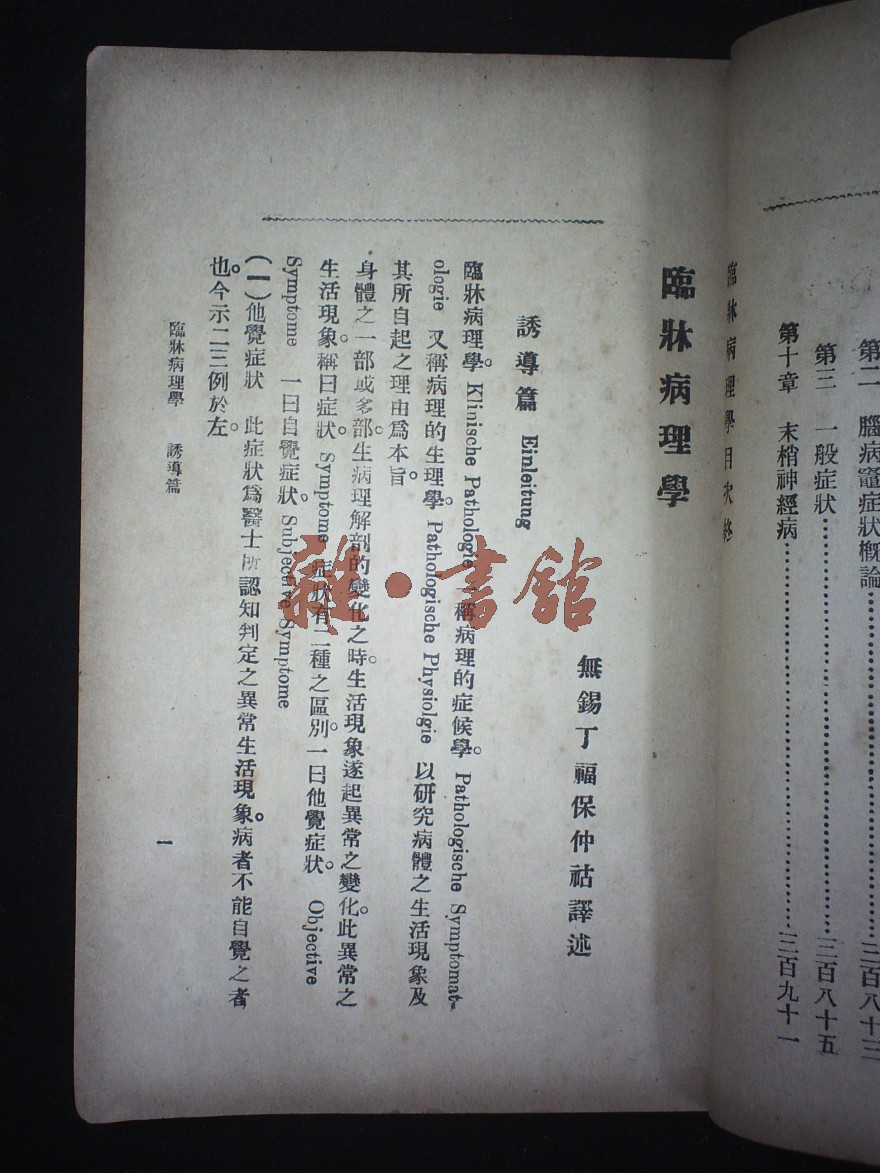 第二 腦病竈症狀槪論……三百八十三
第三 一般症狀……三百八十五
第十章 末梢神經病……三百九十一
臨牀病理學目次終
臨牀病理學
無錫丁福保仲祜譯述
誘導篇 Einleitung
臨牀病理學。Klinische Pathologie 一稱病理的症候學。Pathologische Symptomat-
ologie 又稱病理的生理學。Pathologische Physiolgie 以研究病體之生活現象及
其所自起之理由爲本旨。
身體之一部或多部。生病理解剖的變化之時。生活現象遂起異常之變化。此異常之
生活現象。稱曰症狀。Symptome 症狀有二種之區別。一曰他覺症狀。Objective
Symptome 一曰自覺症狀。Subjective Symptome
(一)他覺症狀 此症狀爲醫士所認知判定之異常生活現象。病者不能自覺之者
也。今示二三例於左。
臨牀病理學 誘導篇
一
雜·書館